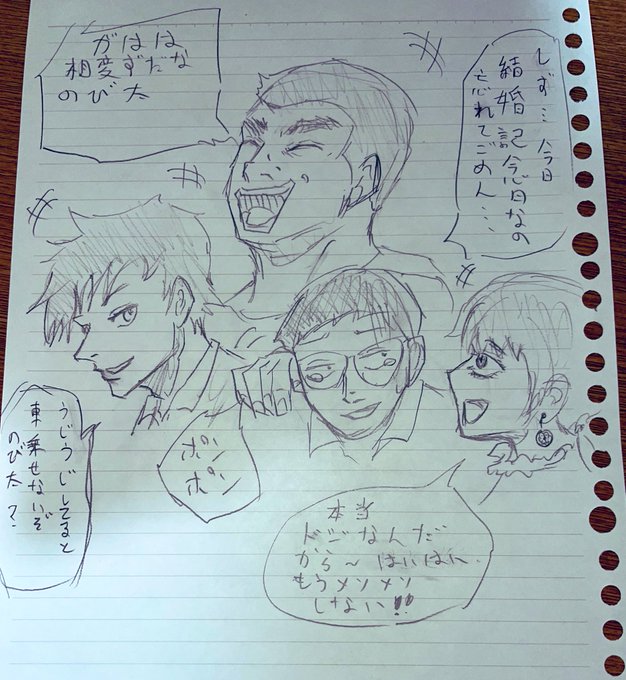 しず… 今日
結婚記念日なの
忘れてごめん…
がはは
相変ずだな
のび太
うじうじしてると
車乗せないぞ
のび太?
ポン
ポン
本当
ドジなんだ
から〜はいはい
もうメソメソ
しない!!